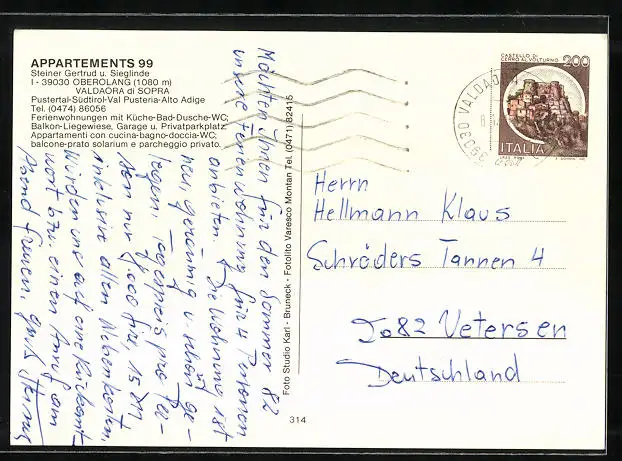 APPARTEMENTS 99
Steiner Gertrud u. Sieglinde
I - 39030 OBEROLANG (1080 m)
VALDAORA di SOPRA
Pustertal-Südtirol-Val Pusteria-Alto Adige
Tel. (0474) 86056
Ferienwohnungen mit Küche-Bad-Dusche-WC;
Balkon-Liegewiese, Garage u. Privatparkplatz
Appartamenti con cucina-bagno-doccia-WC;
balcone-prato solarium e parcheggio privato.
Möchten Ihnen für den Sommer 82
unsere Ferienwohnung für 4 Personen
anbieten. Die Wohnung ist
neu, geräumig u. schön ge-
legen. Tagespreis pro Per-
son nur 8.000 Lire,
inklusive allen Nebenkosten.
Würden uns auf eine Rückant-
wort bzw. einen Anruf am
Abend freuen. Gruß
Foto Studio Karl - Bruneck - Fotolito Varesco Montan Tel. (0471) 82415
314
CASTELLO DI
CERRO AL VOLTURNO
200
ITALIA
39030 VALDAO
Herrn
Hellmann Klaus
Schröders Tannen 4
2082 Uetersen
Deutschland